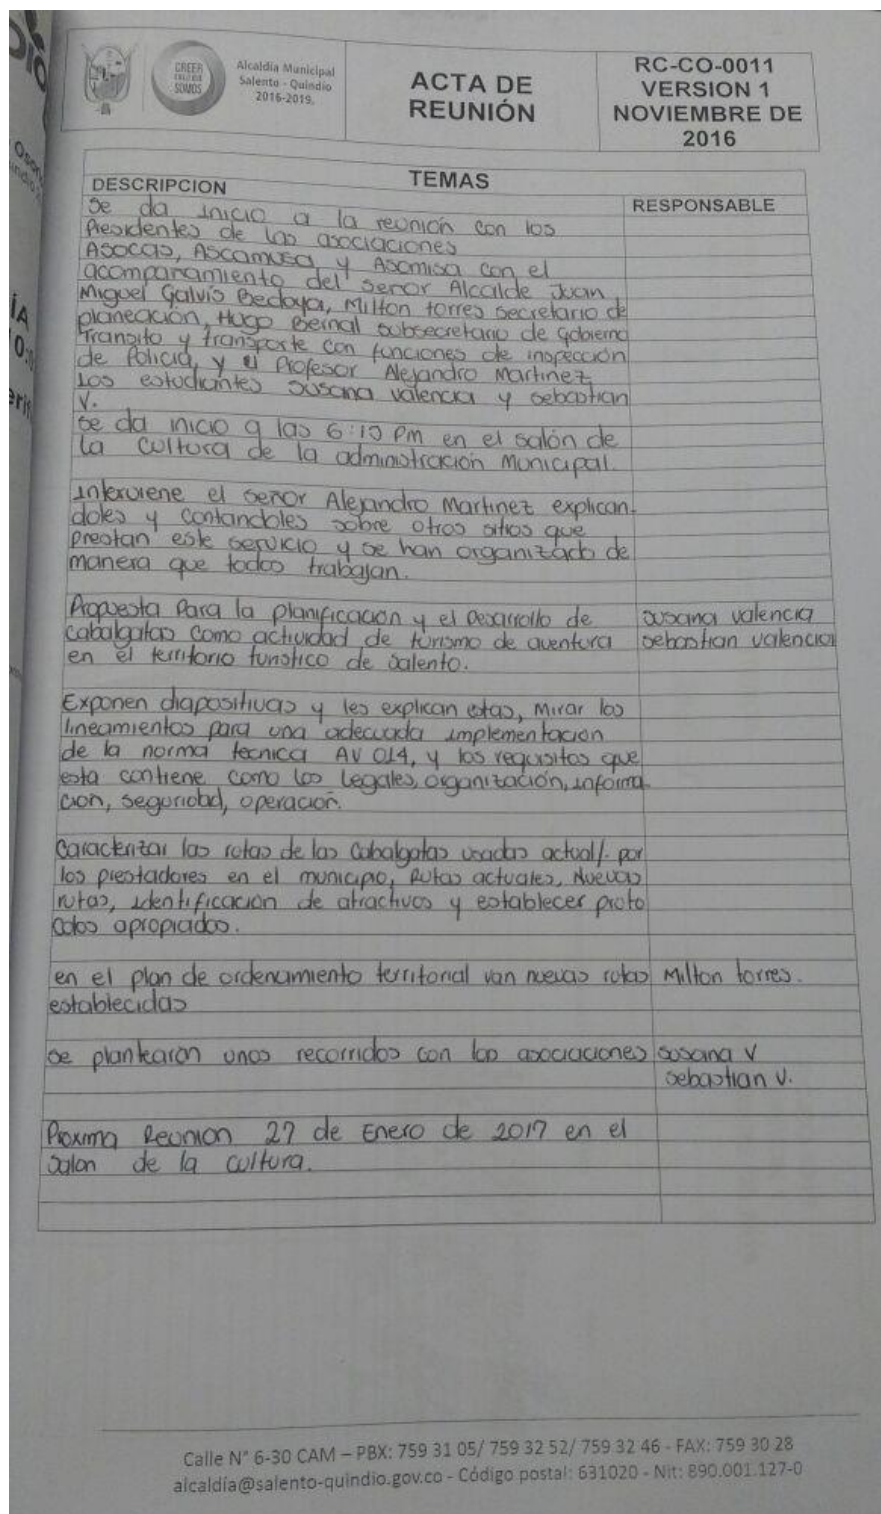 CREER
SOMOS
Alcaldía Municipal
Salento - Quindío
2016-2019.
ACTA DE
REUNIÓN
RC-CO-0011
VERSION 1
NOVIEMBRE DE
2016
TEMAS
DESCRIPCION
RESPONSABLE
Se da inicio a la reunión con los
Presidentes de las asociaciones
ASOCAS, ASCAMUSA y Asomisa con el
acompañamiento del señor Alcalde Juan
Miguel Galvis Bedoya, Milton torres secretario de
planeación, Hugo Bernal subsecretario de Gobierno
Transito y transporte con funciones de inspección
de Policia, y el Profesor Alejandro Martinez,
Los estudiantes Susana Valencia y Sebastian
V.
Se da inicio a las 6:10 Pm en el salón de
la cultura de la administración Municipal.
Interviene el señor Alejandro Martinez explican-
doles y contandoles sobre otros sitios que
prestan este servicio y se han organizado de
manera que todos trabajan.
Propuesta Para la planificación y el Desarrollo de susana valencia
cabalgatas como actividad de turismo de aventura sebastian valencia
en el territorio turistico de Salento.
Exponen diapositivas y les explican estas, Mirar los
lineamientos para una adecuada implementacion
de la norma tecnica AV 014, y los requisitos que
esta contiene como los legales, organización, informa-
cion, seguridad, operación.
Caracterizar las rutas de las cabalgatas usadas actual/. por
los prestadores en el municipio, Rutas actuales, Nuevas
rutas, identificacion de atractivos y establecer proto
colos apropiados.
en el plan de ordenamiento territorial van nuevas rutas Milton torres.
establecidas
se plantearon unos recorridos con las asociaciones susana V
sebastian V.
Proxima Reunion 27 de Enero de 2017 en el
salon de la cultura.
Calle N° 6-30 CAM – PBX: 759 31 05/ 759 32 52/ 759 32 46 - FAX: 759 30 28
alcaldía@salento-quindio.gov.co - Código postal: 631020 - Nit: 890.001.127-0